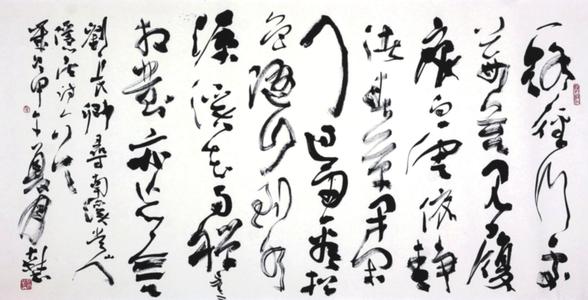 一路經行處
莓苔見履
痕白雲依靜
渚春草閉閑
門過雨看松
色隨山到水
源溪花與禪意
相對亦忘言
劉長卿尋南溪常山人
隱居詩
甲午夏月